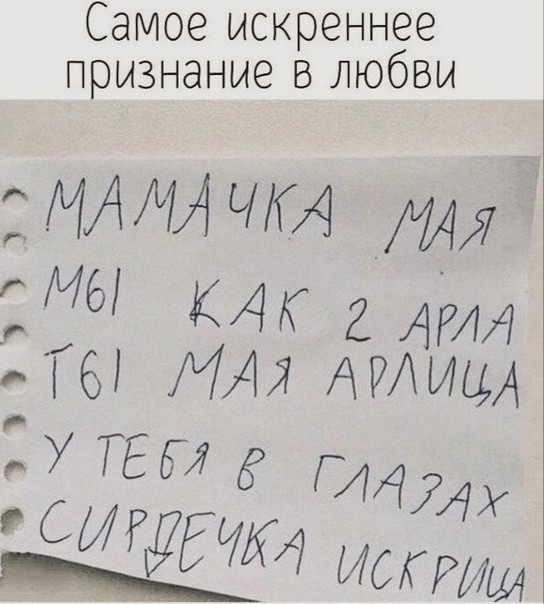 Самое искреннее
признание в любви
МАМАЧКА МАЯ
МЫ КАК 2 АРЛА
ТЫ МАЯ АРЛИЦА
У ТЕБЯ В ГЛАЗАХ
СИРДЕЧКА ИСКРИЦА